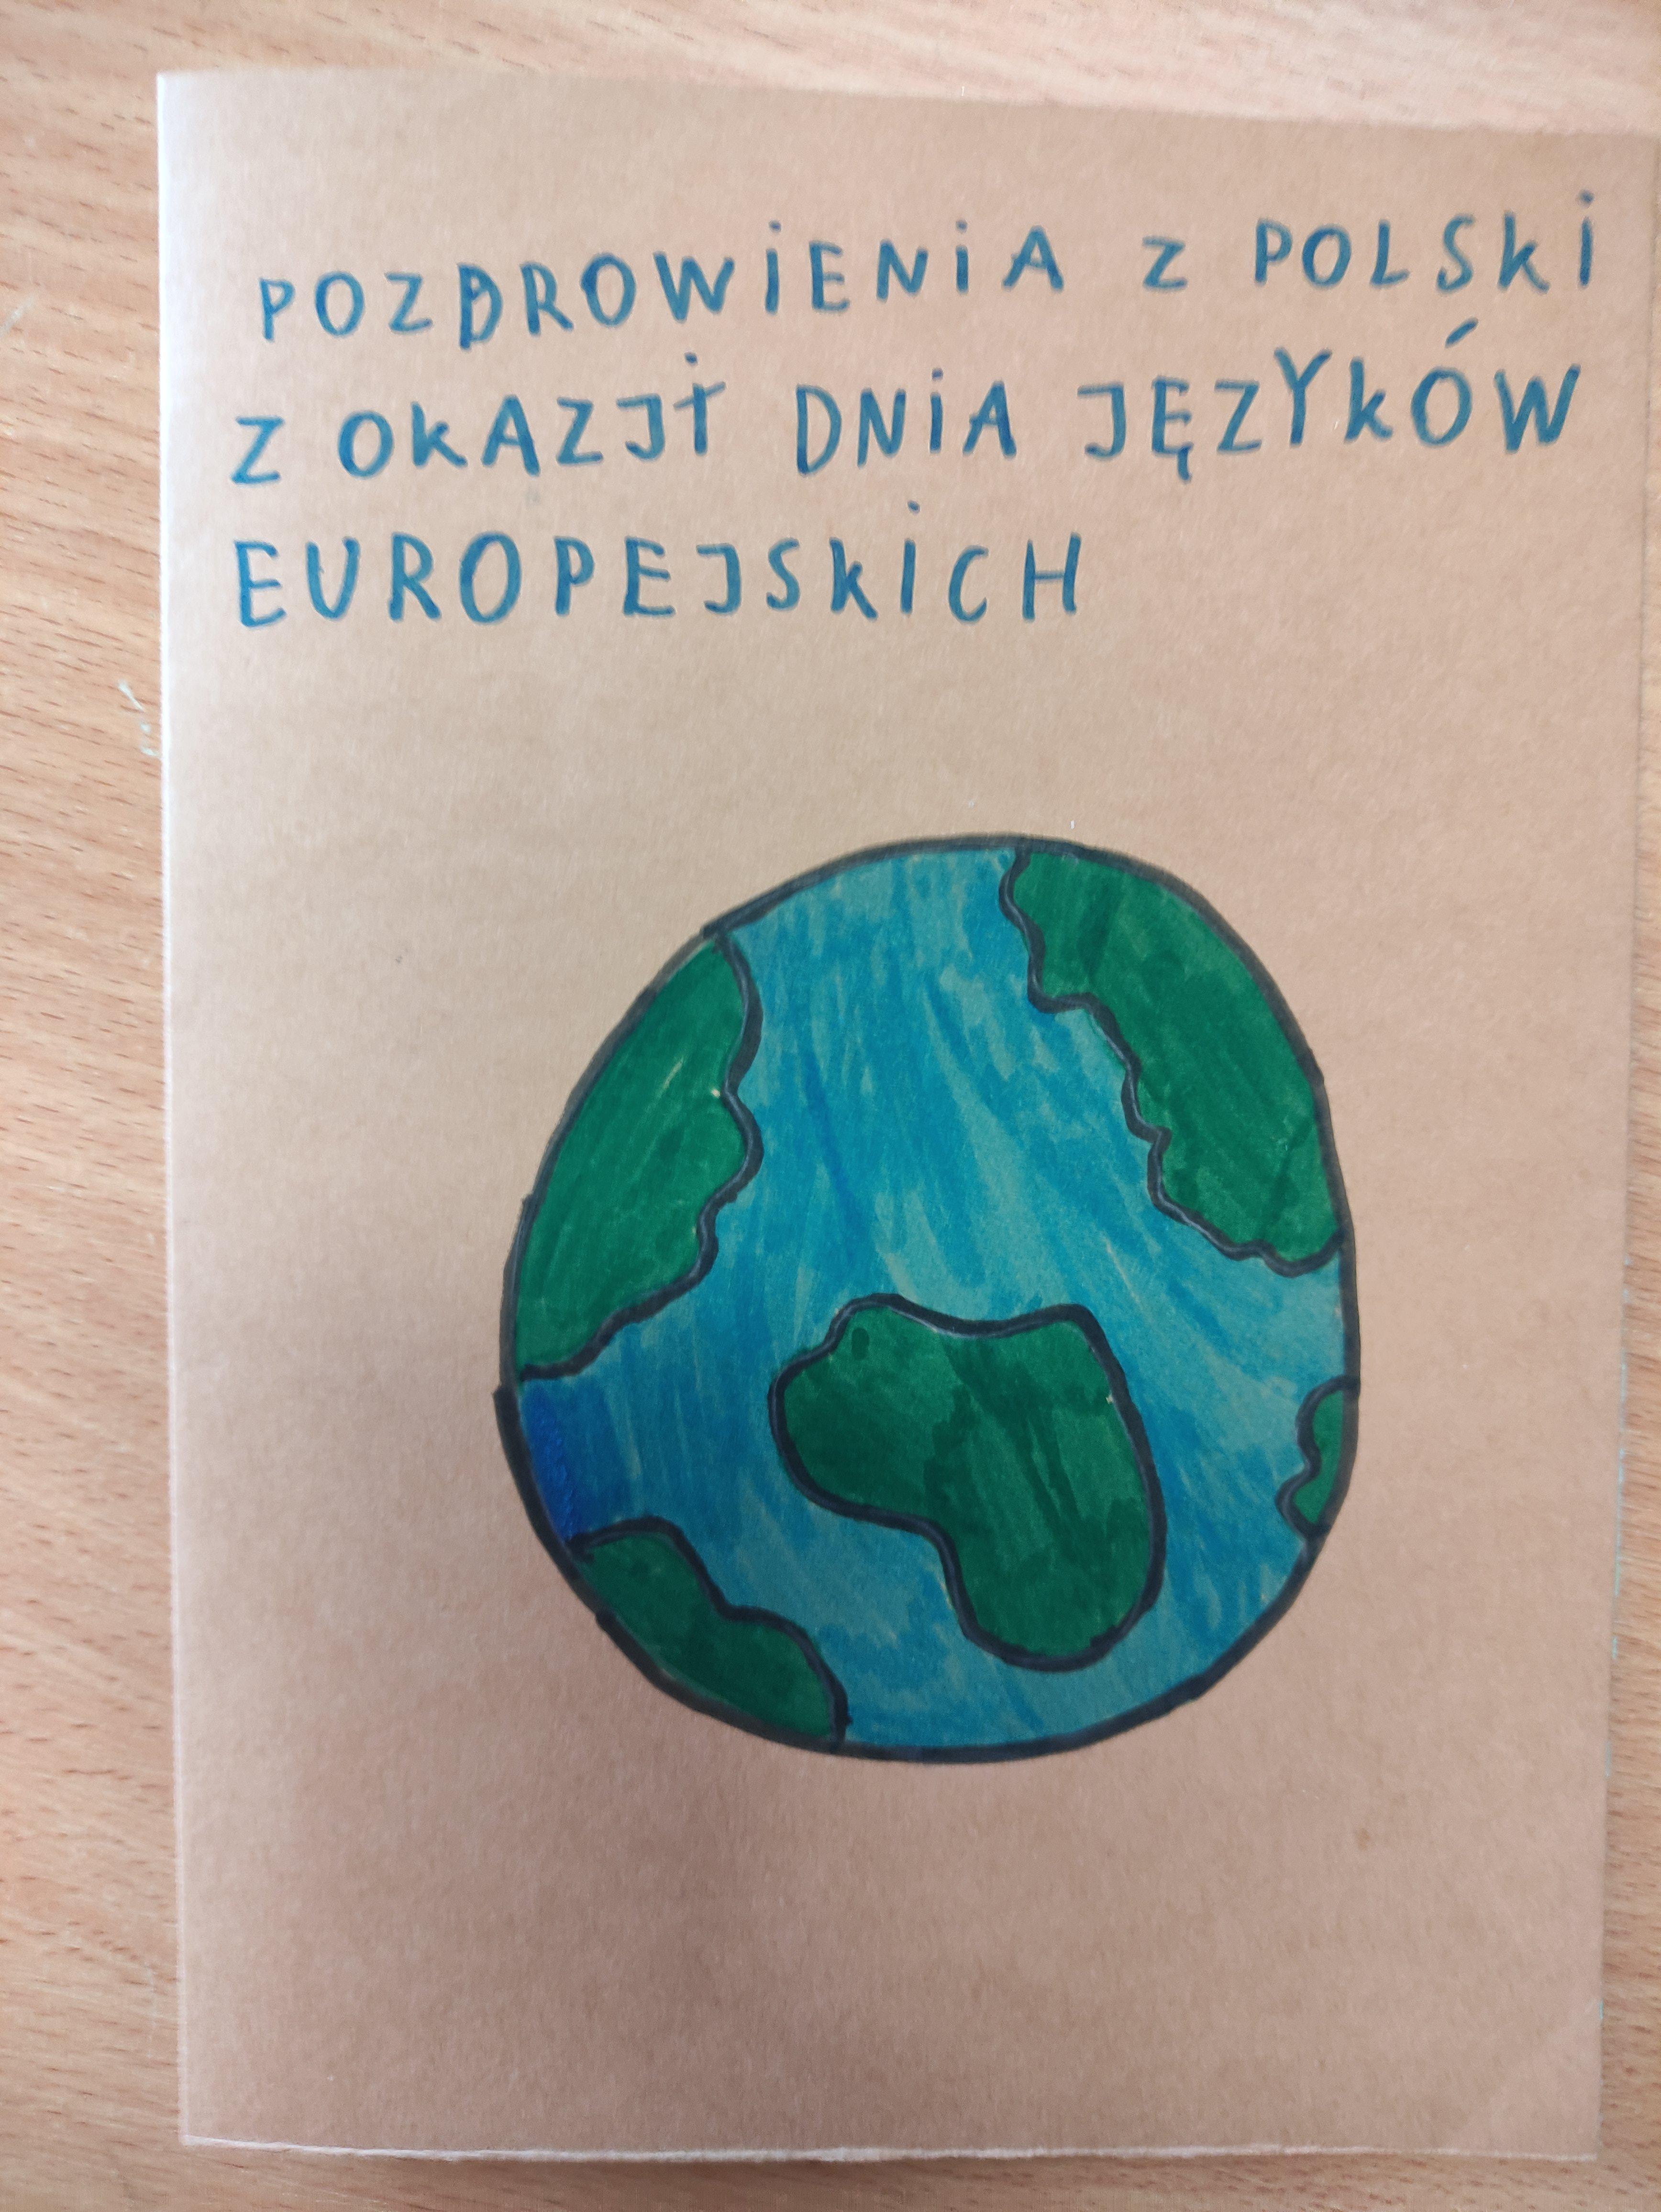 POZDROWiENiA Z POLSKi
Z OKAZJi DNiA JĘZYKÓW
EUROPEJSKiCH